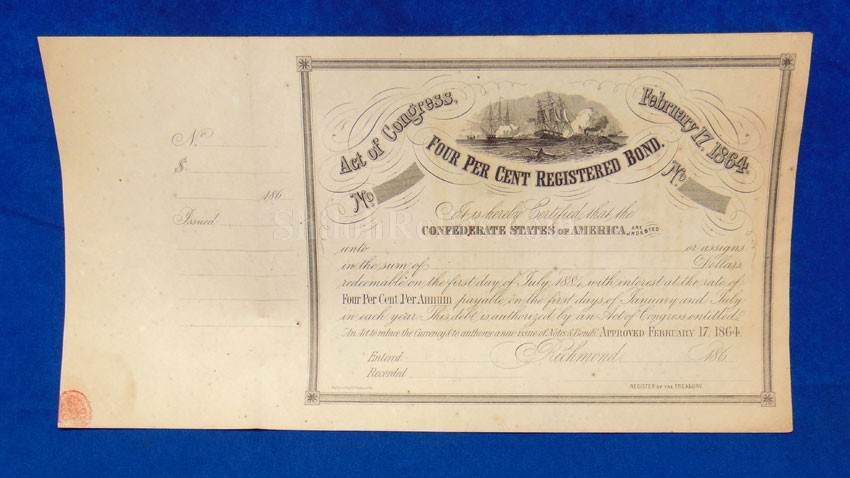 No.
$
186
Issued
Act of Congress, February 17, 1864.
FOUR PER CENT REGISTERED BOND.
No No
It is hereby Certified, that the
CONFEDERATE STATES OF AMERICA, ARE INDEBTED
unto or assigns
in the sum of Dollars
redeemable on the first day of July 188 with interest at the rate of
Four Per Cent Per Annum payable on the first days of January and July
in each year. This debt is authorized by an Act of Congress entitled
"An Act to reduce the Currency & to authorise a new issue of Notes & Bonds" APPROVED FEBRUARY 17, 1864.
Entered Richmond 186
Recorded
REGISTER OF THE TREASURY.